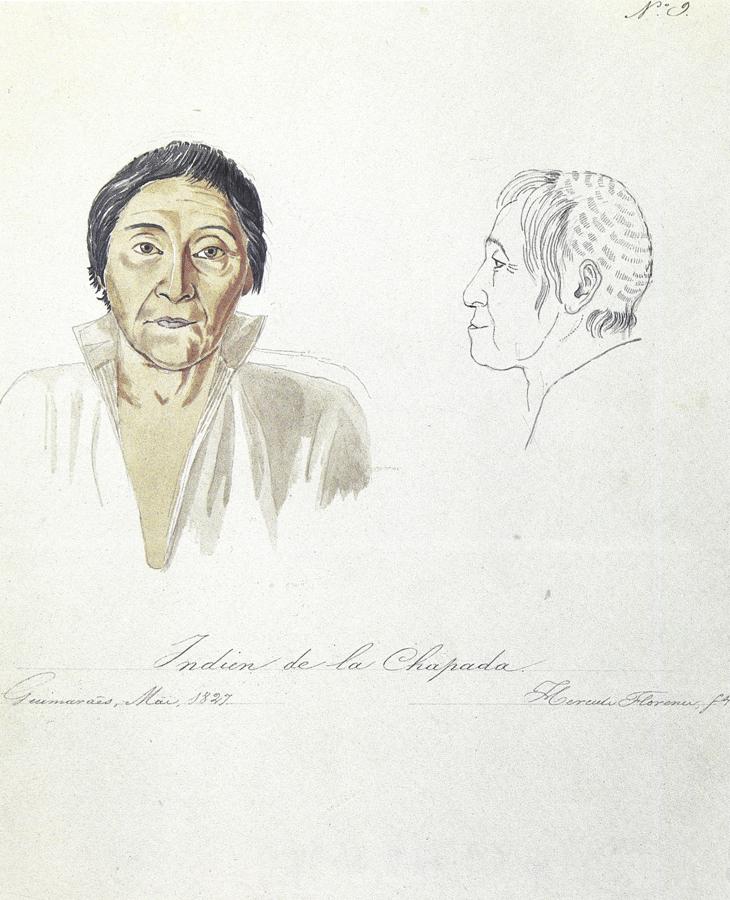 N.º 9.
Indien de la Chapada.
Guimarães, Mai, 1827.
Hercule Florence, ft